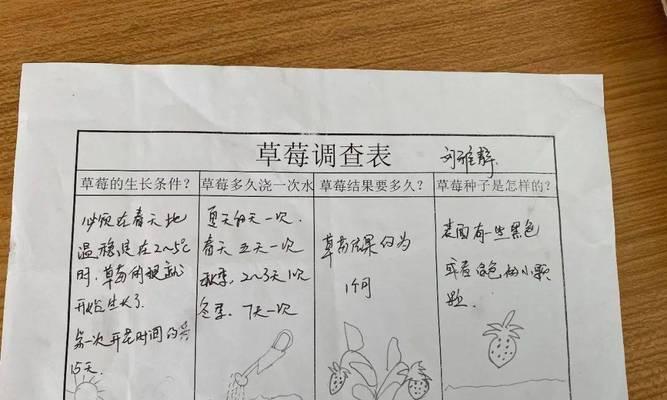 草莓调查表
刘雅静
草莓的生长条件？
草莓多久浇一次水
草莓结果要多久？
草莓种子是怎样的？
必须在春天地
温稳定在2~5℃
时，草莓的根就
开始生长了.
第一次开花时间约
15天.
夏天
天一次.
春天 五天一次
秋季. 2~3天1次
冬季. 7天一次
草莓结果约为
1个月
表面有一些黑色
或者
色的小颗
粒.